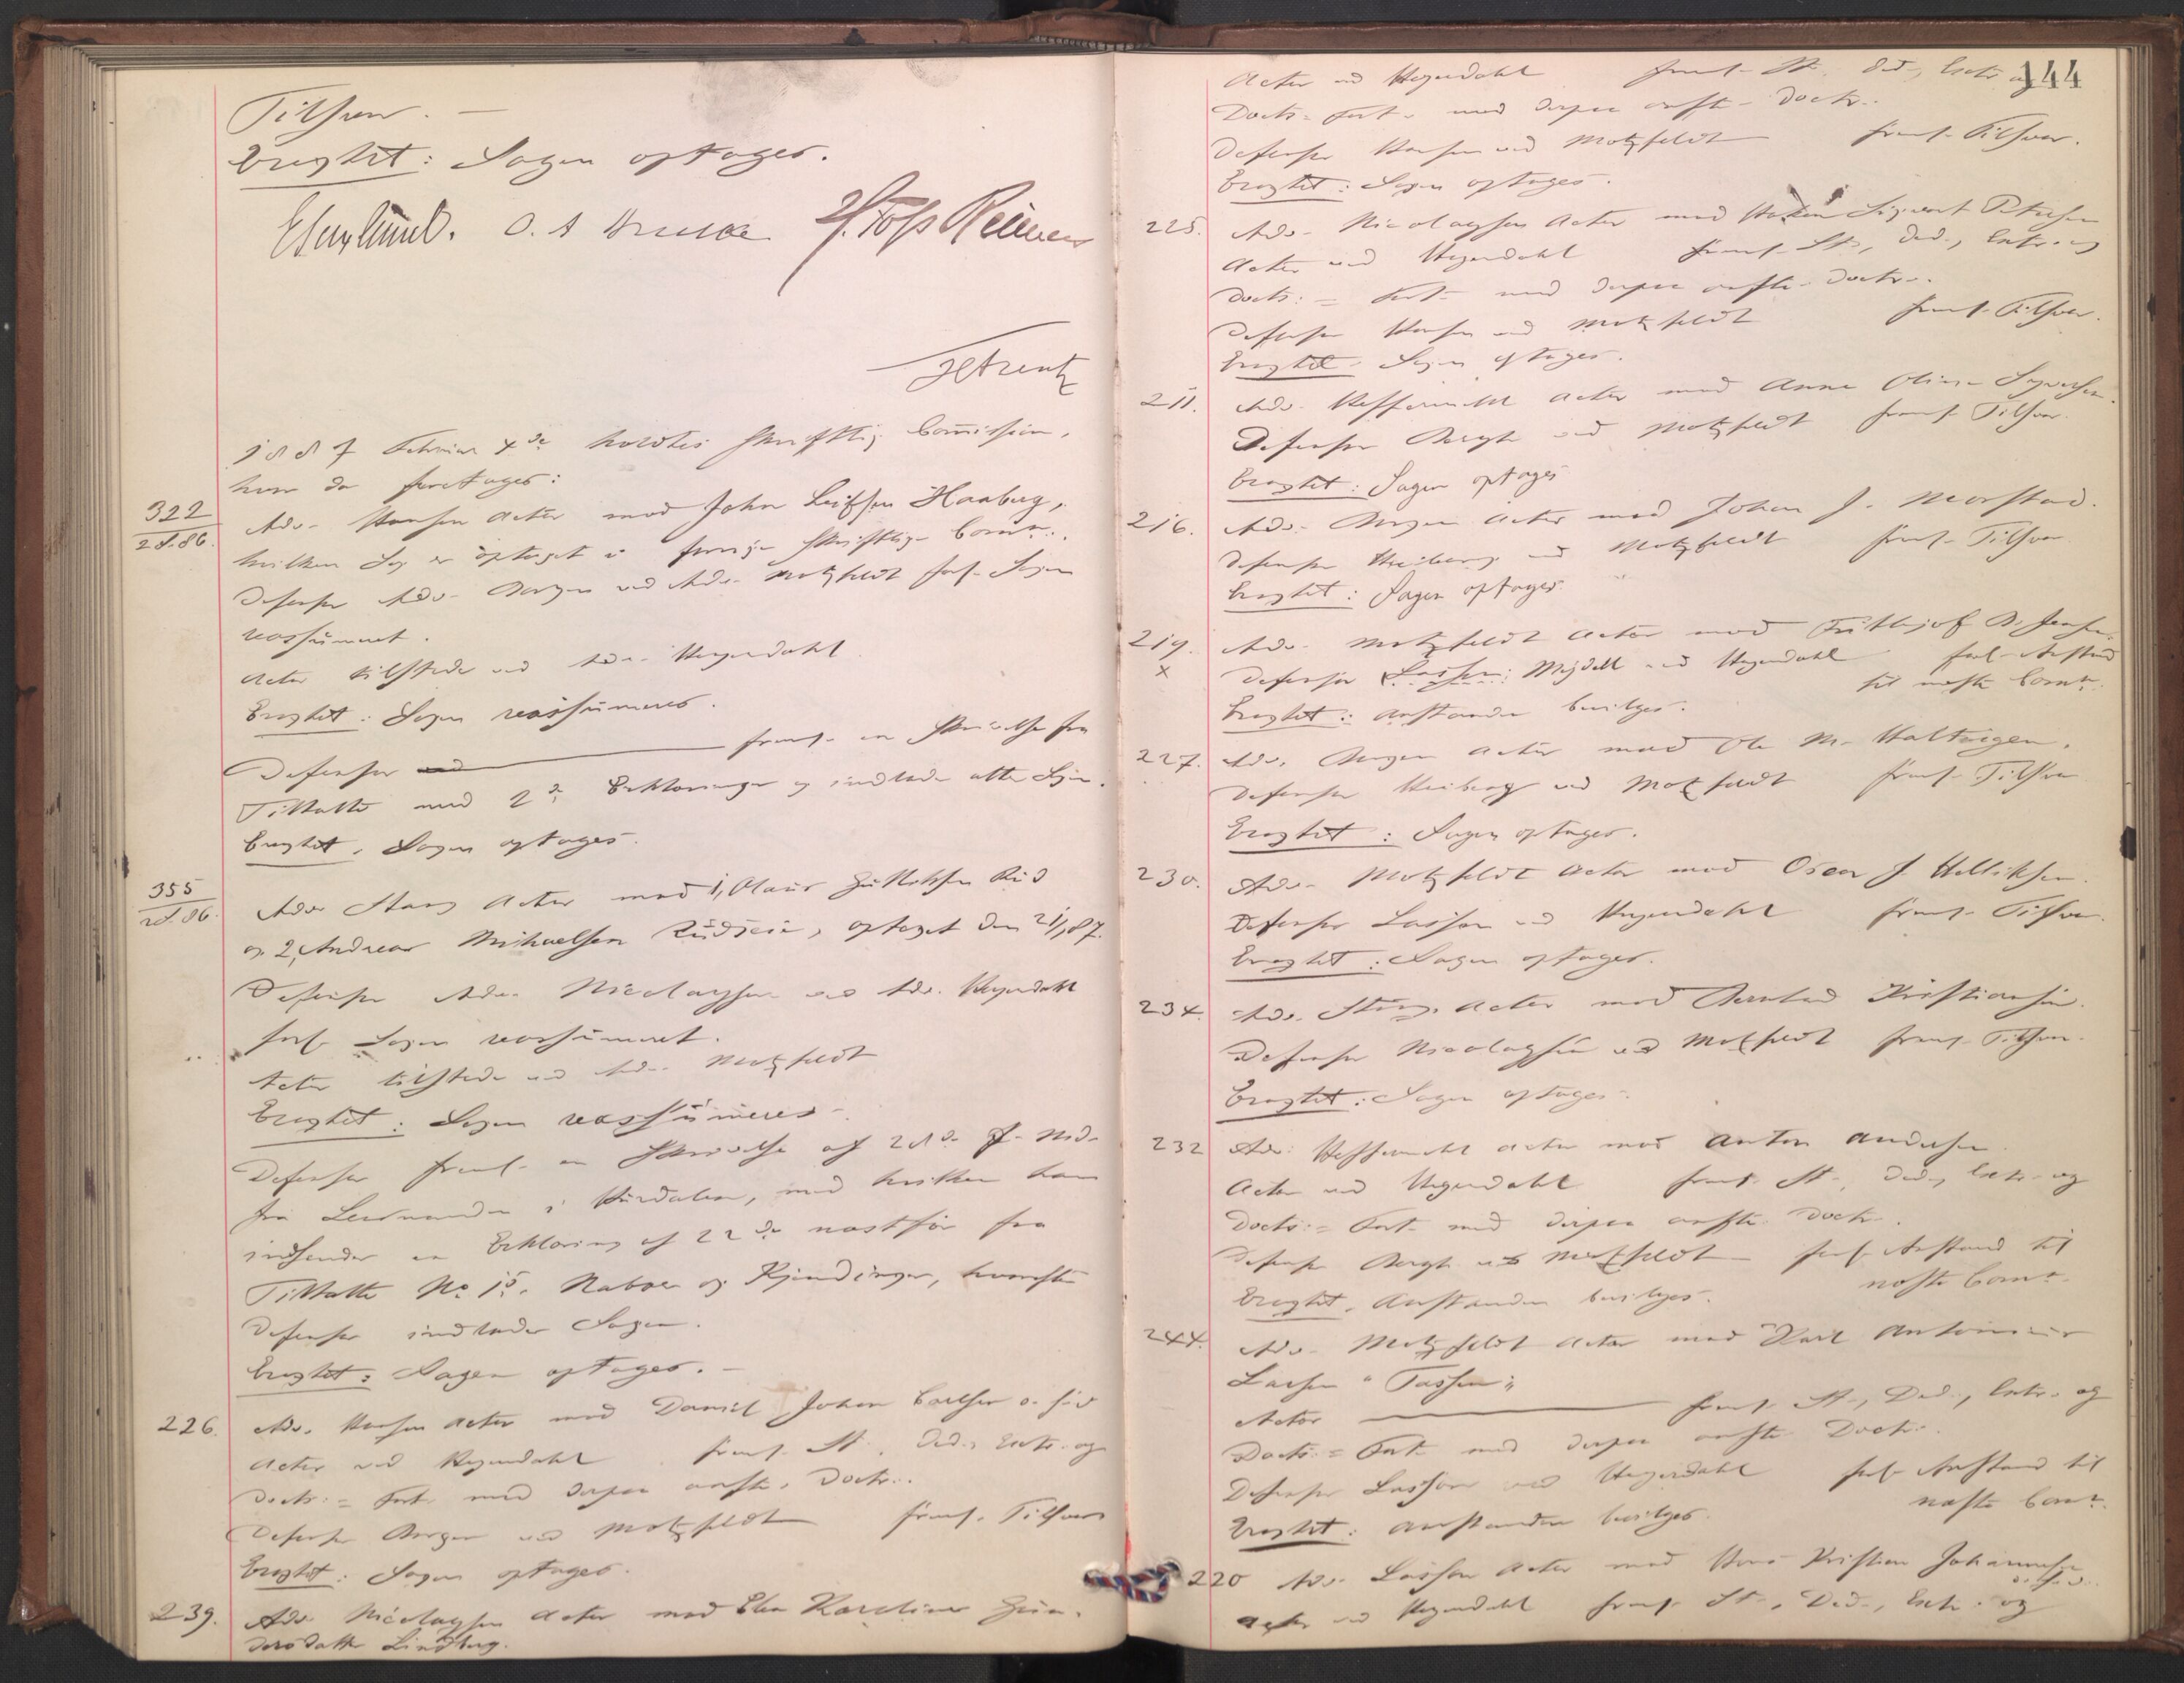 Tilsvar. –
Eragtet: Sagen optages.
1887 Februar 4de holdtes skriftlig Commission,
hvor da foretages:
322
2 S. 86.
Adv. Hansen Actor mod John Leifsen Haaberg,
hvilken Sag er optaget i forrige skriftlige Comn.
Defensor Adv. Bergen ved Adv. Motzfeldt forl. Sagen
reassumeret.
Actor tilstede ved Adv. Heyerdahl
Eragtet: Sagen reassumeres.
Defensor ved — freml. en Skrivelse fra
Tiltalte med 2de Erklæringer og indlader atter Sagen.
Eragtet. Sagen optages.
355
2 S. 86.
Adv. Stang Actor mod 1, Olaus Rud
og 2, Andreas Michaelsen optaget den 21/1 87.
Defensor Adv. Nicolaysen ved Adv. Heyerdahl
forl. Sagen reassumeret.
Actor tilstede ved Adv. Motzfeldt
Eragtet: Sagen reassumeres –
Defensor freml. en Skrivelse af
fra Lensmanden i med hvilken han
indsender en Erklæring af 22de næstfør fra
Tiltalte No 1s. Naboer og Kjendinger, hvorefter
Defensor indlader Sagen.
Eragtet: Sagen optages. –
226.
Adv. Hansen Actor mod Daniel Johan Carlsen
Actor ved Heyerdahl freml. St., Ded., Extr. og
Doctr. = Fort. med derpaa anfte. Doctr.
Defensor Bergen ved Motzfeldt freml. Tilsvar
Eragtet: Sagen optages.
239.
Adv. Nicolaysen Actor mod Elen Karoline Gun-
dersdatter Lindberg.
144
Actor ved Heyerdahl freml. St. Ded., Extr. og
Doctr. = Fort. med derpaa anfte. Doctr.
Defensor Hansen ved Motzfeldt freml. Tilsvar.
Eragtet: Sagen optages.
225.
Adv. Nicolaysen Actor mod Sigvart Petersen
Actor ved Heyerdahl freml. St., Ded., Extr. og
Doctr. = Fort. med derpaa anfte. Doctr.
Defensor Hansen ved Motzfeldt freml. Tilsvar.
Eragtet: Sagen optages.
211.
Adv. Actor mod Anne Oline
Defensor Bergh ved Motzfeldt freml. Tilsvar
Eragtet: Sagen optages
216.
Adv. Bergen Actor mod Johan J. Morstad.
Defensor Heiberg ved Motzfeldt freml. Tilsvar
Eragtet: Sagen optages.
219.
x
Adv. Motzfeldt Actor mod Frithjof B. Jensen.
Defensor Lasson: Mejdell ved Heyerdahl forl. Anstand
til næste Comn.
Eragtet: Anstanden bevilges.
227.
Adv. Bergen Actor mod Ole M. Haltvigen.
Defensor Heiberg ved Motzfeldt freml. Tilsvar
Eragtet: Sagen optages.
230.
Adv. Motzfeldt Actor mod Oscar J. Helliksen.
Defensor Lasson ved Heyerdahl freml. Tilsvar.
Eragtet: Sagen optages.
234.
Adv. Stang Actor mod Kristiansen.
Defensor Nicolaysen ved Motzfeldt freml. Tilsvar.
Eragtet: Sagen optages.
232
Adv. Actor mod Anton Andersen
Actor ved Heyerdahl freml. St., Ded., Extr. og
Doctr. = Fort. med derpaa anfte. Doctr.
Defensor Bergh ved Motzfeldt forl. Anstand til
næste Comn.
Eragtet. Anstanden bevilges.
244.
Adv. Motzfeldt Actor mod Karl Antonius
Larsen "Tassen"
Actor — freml. St., Ded., Extr. og
Doctr. = Fort. med derpaa anfte. Doctr.
Defensor Lasson ved Heyerdahl forl. Anstand til
næste Comn.
Eragtet: Anstanden bevilges.
220
Adv. Lasson Actor mod Hans Kristian Johannesen
Actor ved Heyerdahl freml. St., Ded., Extr. og